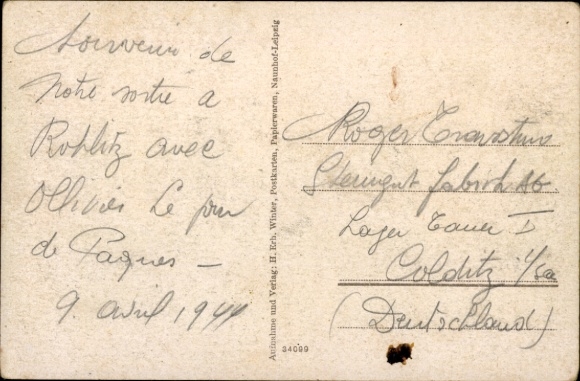 Souvenir de
Notre sortie a
Rohlitz avec
Ollivier Le jour
de Paques —
9. avril 1944
Aufnahme und Verlag: H. Erh. Winter, Postkarten, Papierwaren, Naunhof-Leipzig
34099
Roger
Steingut fabrik AG
Lager I
Colditz i/Sa
(Deutschland)